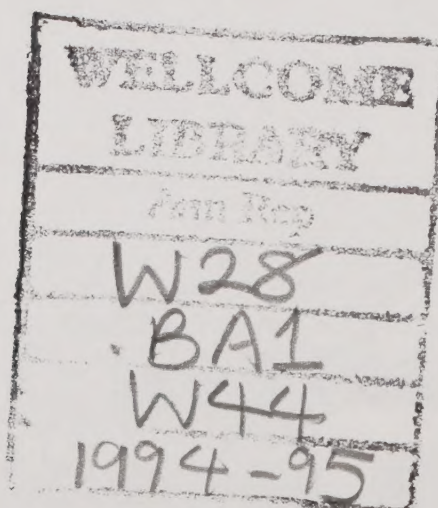 WELLCOME
LIBRARY
Ann Rep
W28
. BA1
W44
1994-95